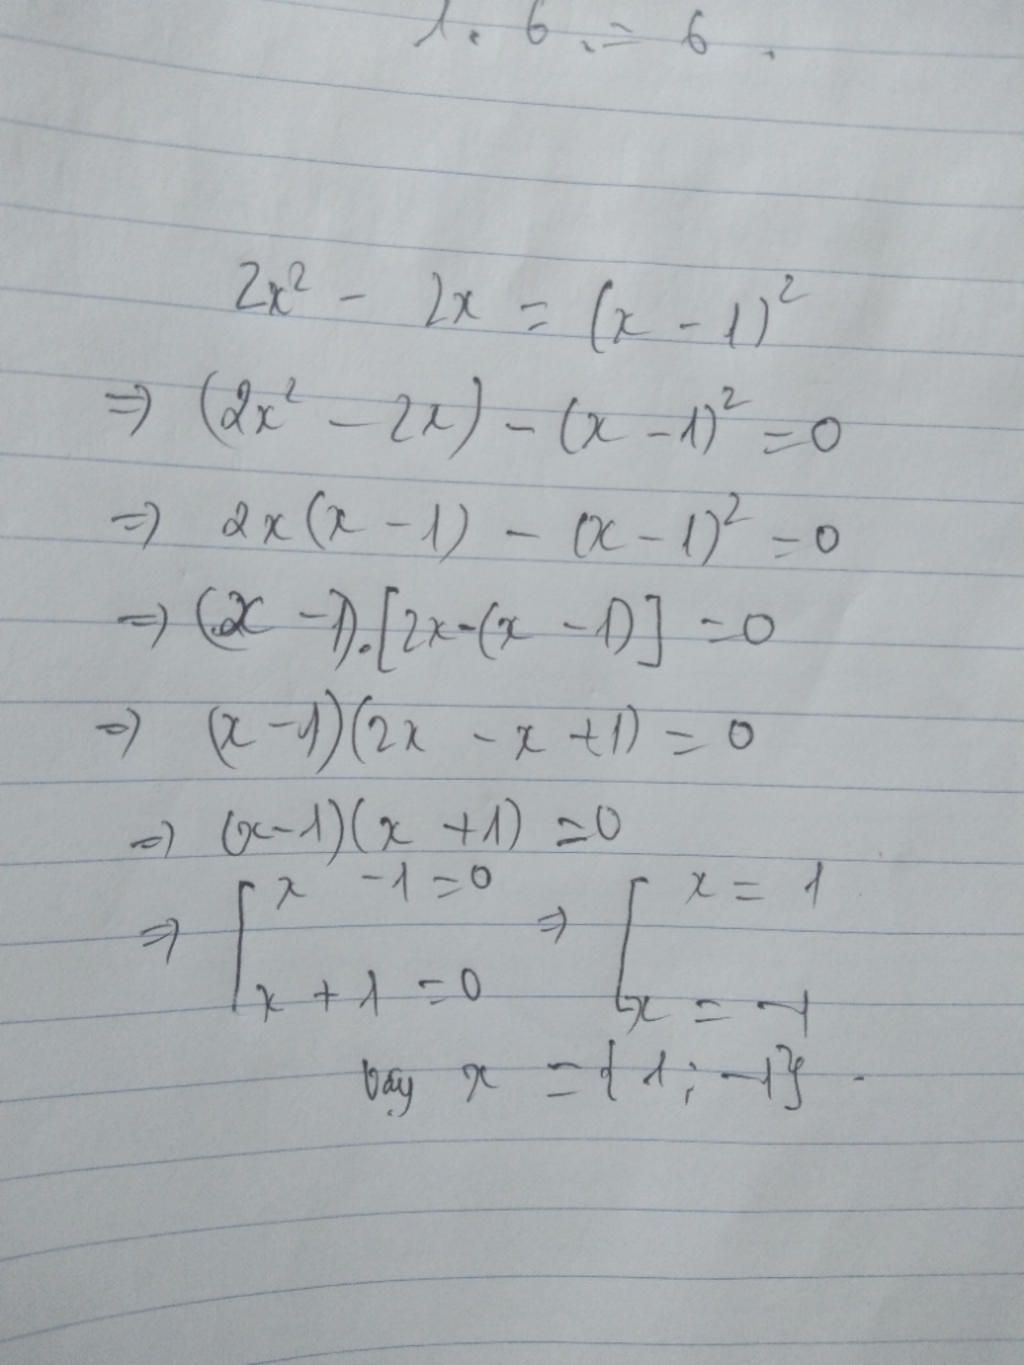 1. 6 = 6.
2x² - 2x = (x - 1)²
⇒ (2x² - 2x) - (x - 1)² = 0
⇒ 2x(x - 1) - (x - 1)² = 0
⇒ (x - 1).[2x - (x - 1)] = 0
⇒ (x - 1)(2x - x + 1) = 0
⇒ (x - 1)(x + 1) = 0
⇒ [ x - 1 = 0 ⇒ [ x = 1
x + 1 = 0 x = -1
Vậy x = {1; -1}.